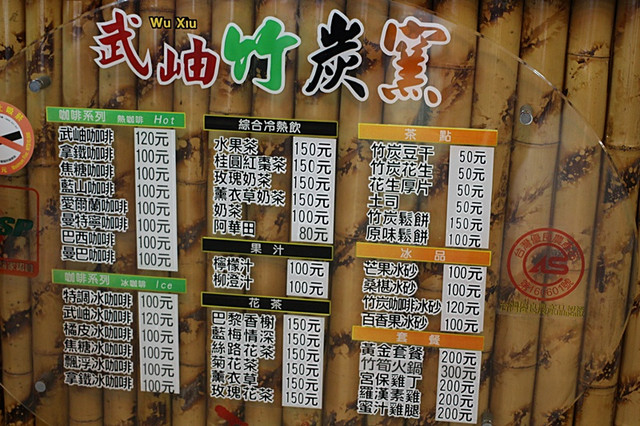 Wu Xiu
武岫竹炭窯
咖啡系列 熱咖啡 Hot
武岫咖啡 120元
拿鐵咖啡 100元
焦糖咖啡 100元
藍山咖啡 100元
愛爾蘭咖啡 100元
曼特寧咖啡 100元
巴西咖啡 100元
曼巴咖啡 100元
咖啡系列 冰咖啡 Ice
特調冰咖啡 100元
武岫冰咖啡 120元
橘皮冰咖啡 100元
焦糖冰咖啡 100元
飄浮冰咖啡 100元
拿鐵冰咖啡 100元
綜合冷熱飲
水果茶 150元
桂圓紅棗茶 150元
玫瑰奶茶 150元
薰衣草奶茶 150元
奶茶 100元
阿華田 80元
果汁
檸檬汁 100元
柳澄汁 100元
花茶
巴黎香榭 150元
藍梅情深 150元
絲路花茶 150元
菊花茶 150元
薰衣草 150元
玫瑰花茶 150元
茶點
竹炭豆干 50元
竹炭花生 50元
花生厚片 50元
土司 50元
竹炭鬆餅 150元
原味鬆餅 100元
冰品
芒果冰砂 100元
桑椹冰砂 100元
竹炭咖啡冰砂 120元
百香果冰砂 100元
套餐
黃金套餐 200元
竹筍火鍋 300元
宮保雞丁 200元
羅漢素雞 200元
蜜汁雞腿 200元